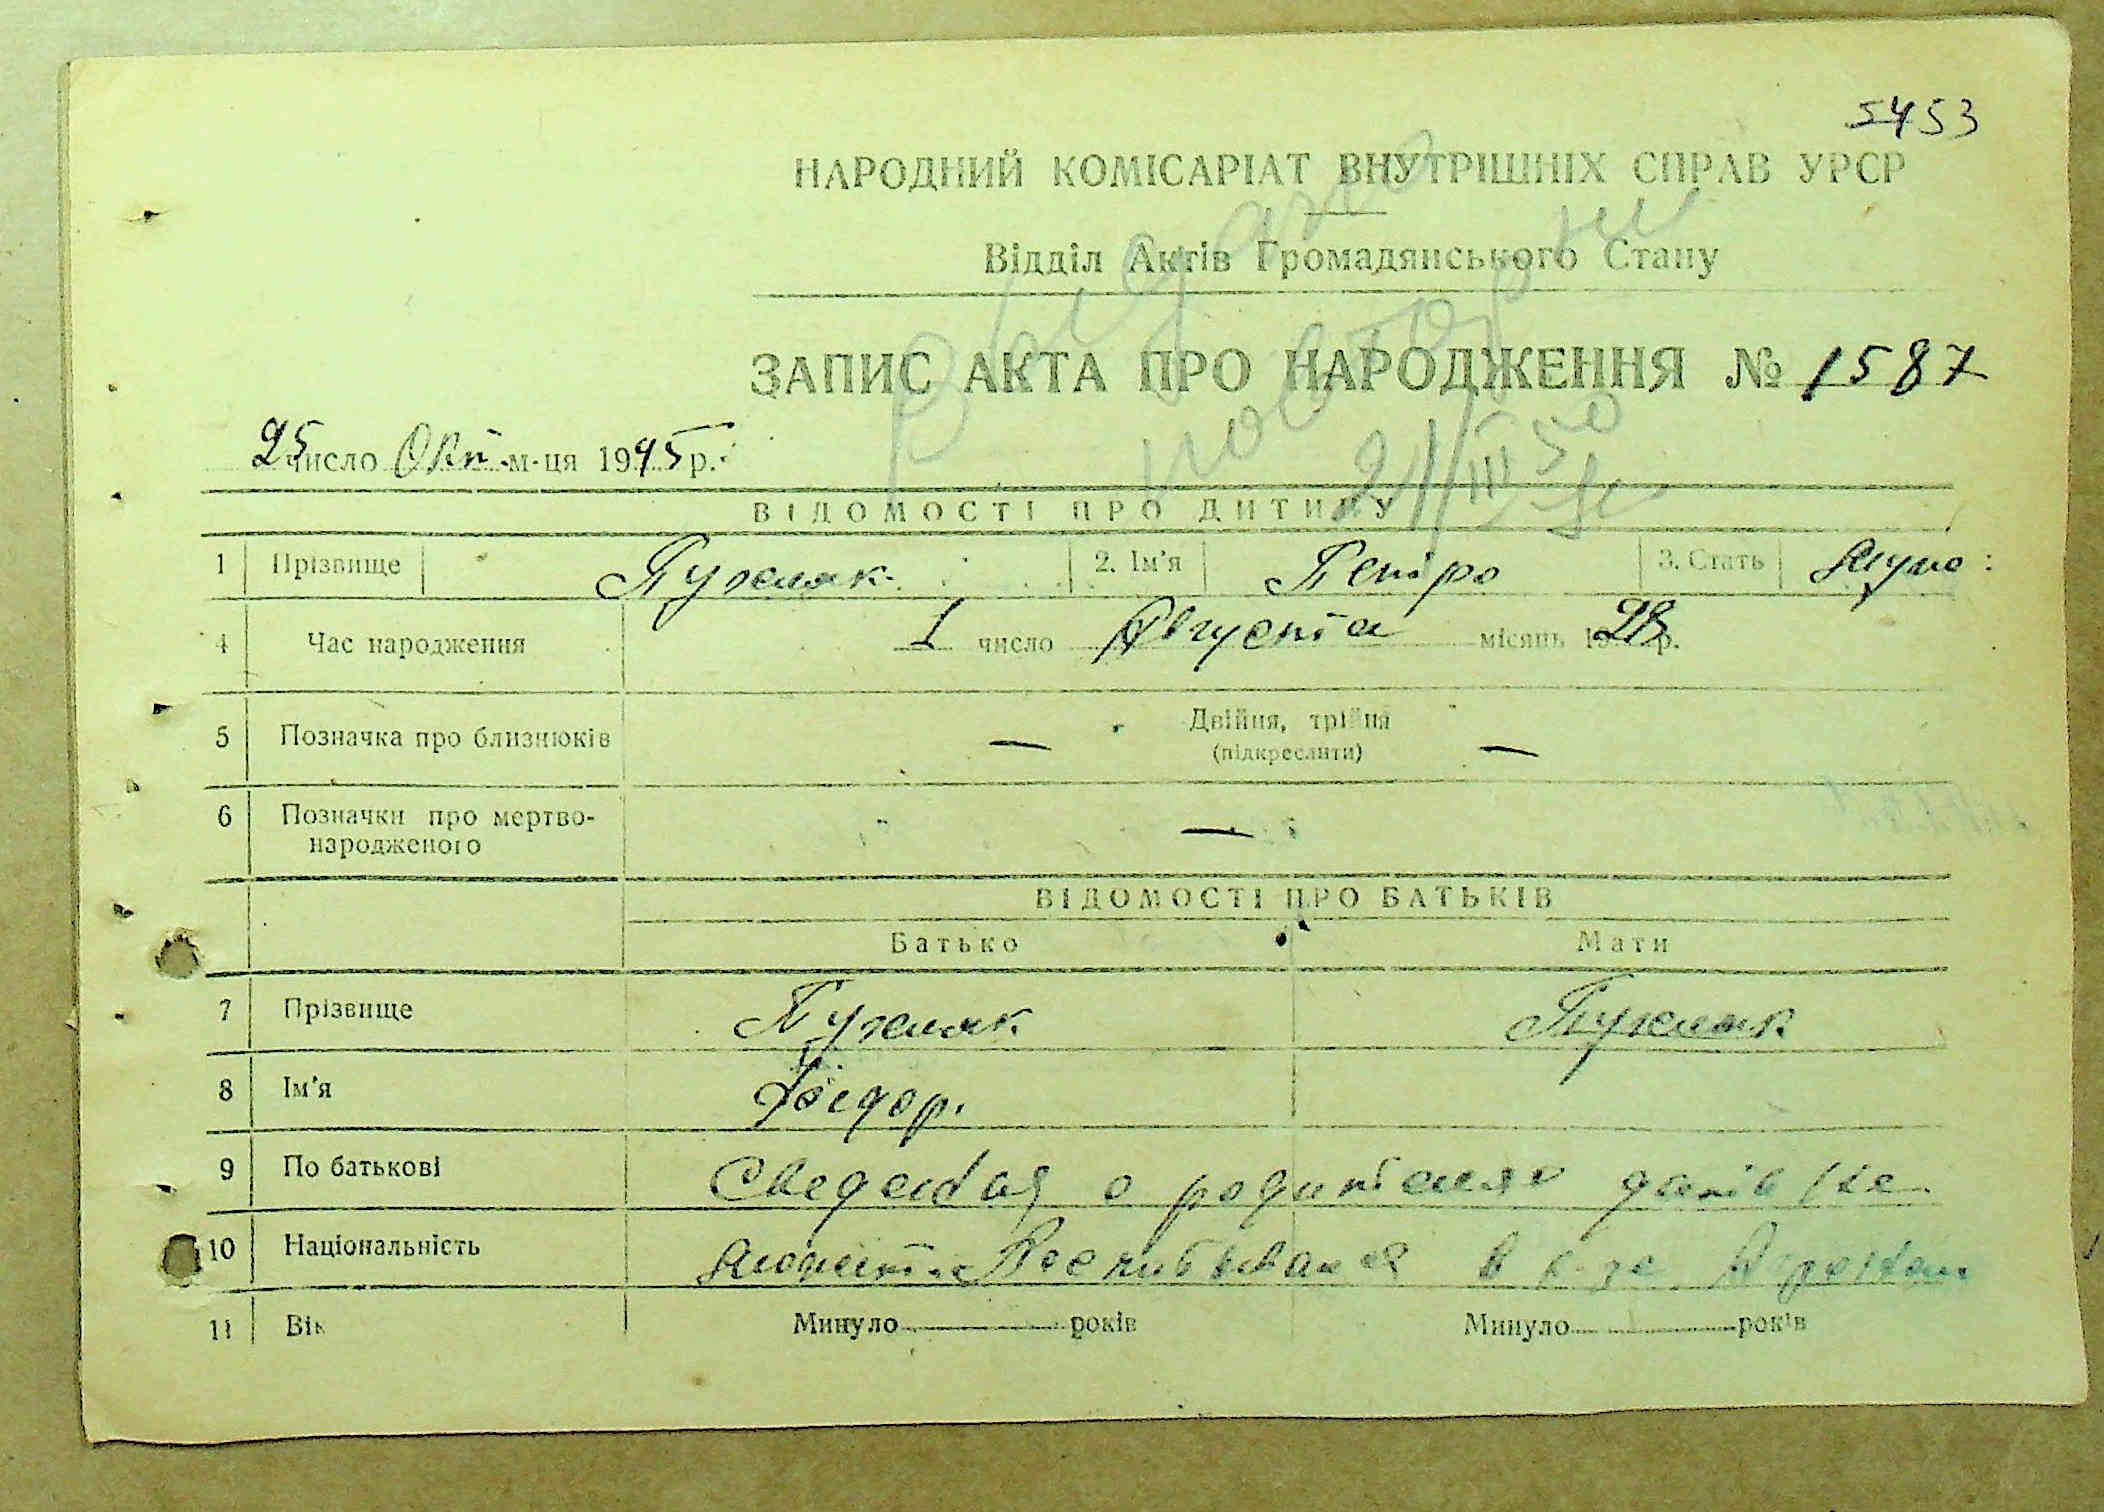 5453
НАРОДНИЙ КОМІСАРІАТ ВНУТРІШНІХ СПРАВ УРСР
Відділ Актів Громадянського Стану
ЗАПИС АКТА ПРО НАРОДЖЕННЯ № 1587
25 число Окт. м-ця 1945 р.
ВІДОМОСТІ ПРО ДИТИНУ
1 Прізвище Пужляк 2. Ім'я Петро 3. Стать муж
4 Час народження 1 число Августа місяць 1928 р.
5 Позначка про близнюків — Двійня, трійня —
(підкреслити)
6 Позначки про мертво- —
народженого
ВІДОМОСТІ ПРО БАТЬКІВ
Батько Мати
7 Прізвище Пужляк Пужляк
8 Ім'я Фёдор.
9 По батькові Сведения о родителях дать не
10 Національність может. Воспитывался в
11 Вік Минуло років Минуло років